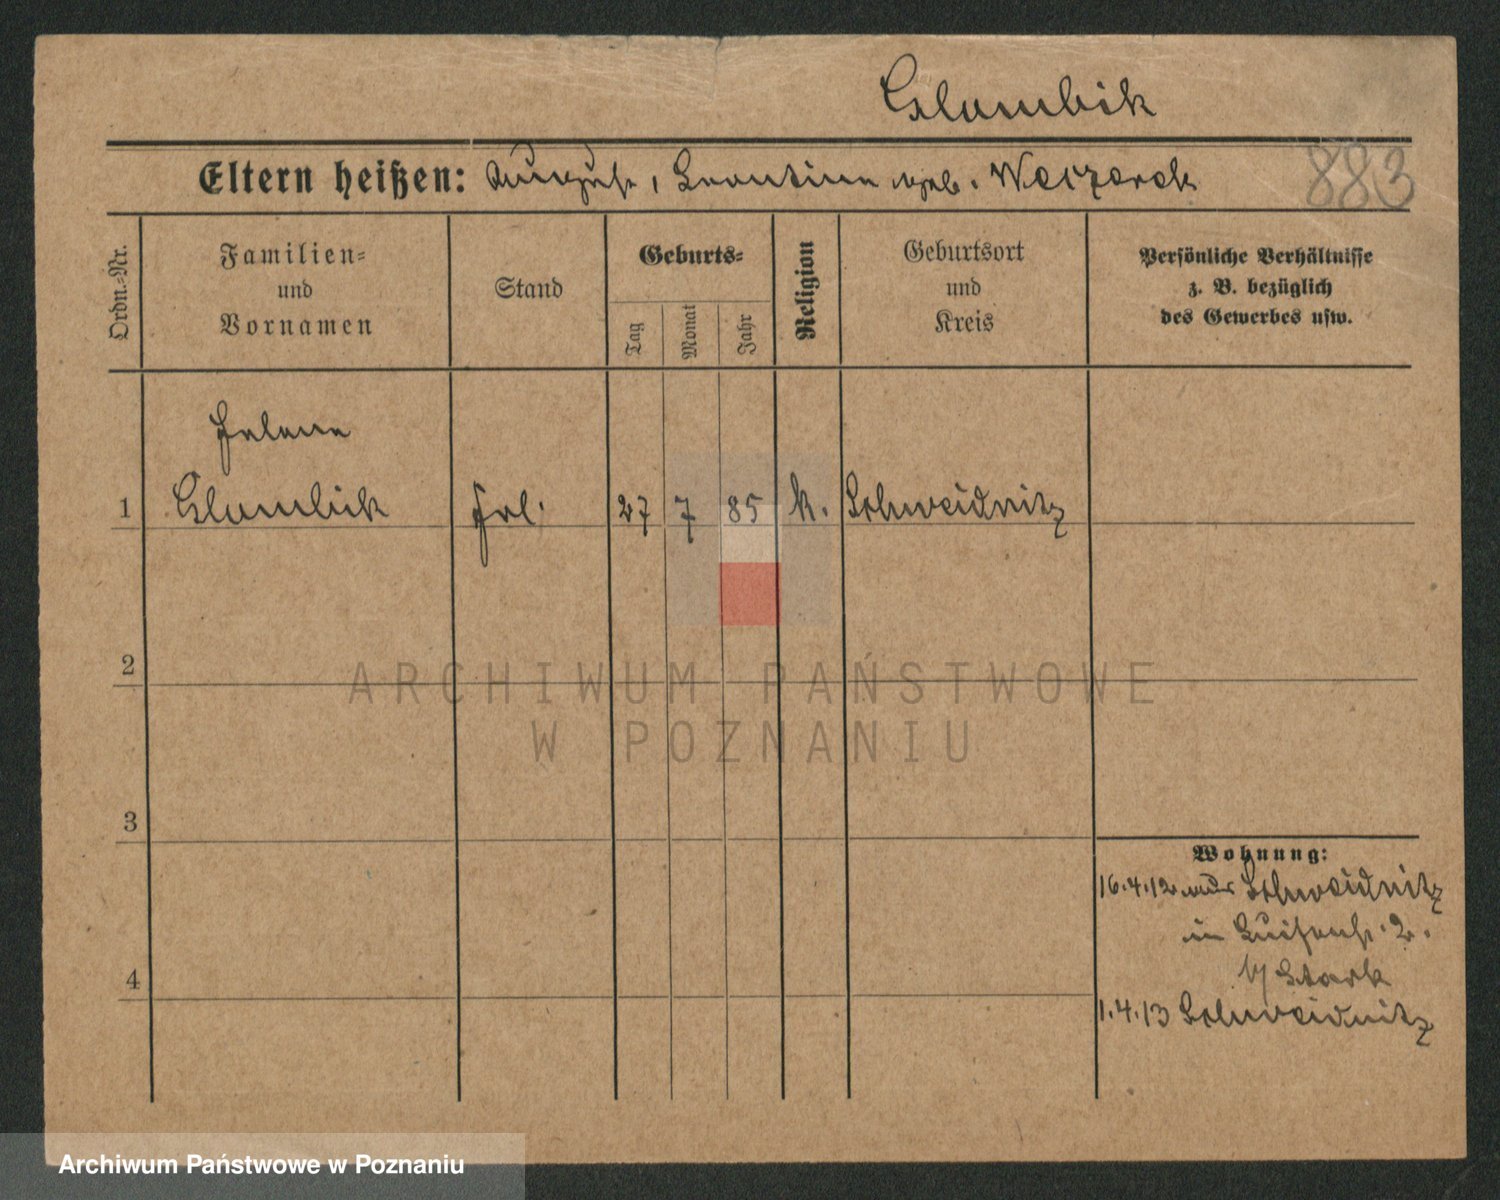 Glombik
Eltern heißen: August, Leontine geb. Weizorek
883
Ordn.-Nr.
Familien-
und
Vornamen
Stand
Geburts-
Tag
Monat
Jahr
Religion
Geburtsort
und
Kreis
Persönliche Verhältnisse
z. B. bezüglich
des Gewerbes usw.
Helene
1 Glombik Frl. 27 7 85 k. Schweidnitz
2
ARCHIWUM PAŃSTWOWE
W POZNANIU
3
Wohnung:
16.4.12 aus Schweidnitz
in Luisenstr. 2.
b/ Stark
4
1.4.13 Schweidnitz
Archiwum Państwowe w Poznaniu